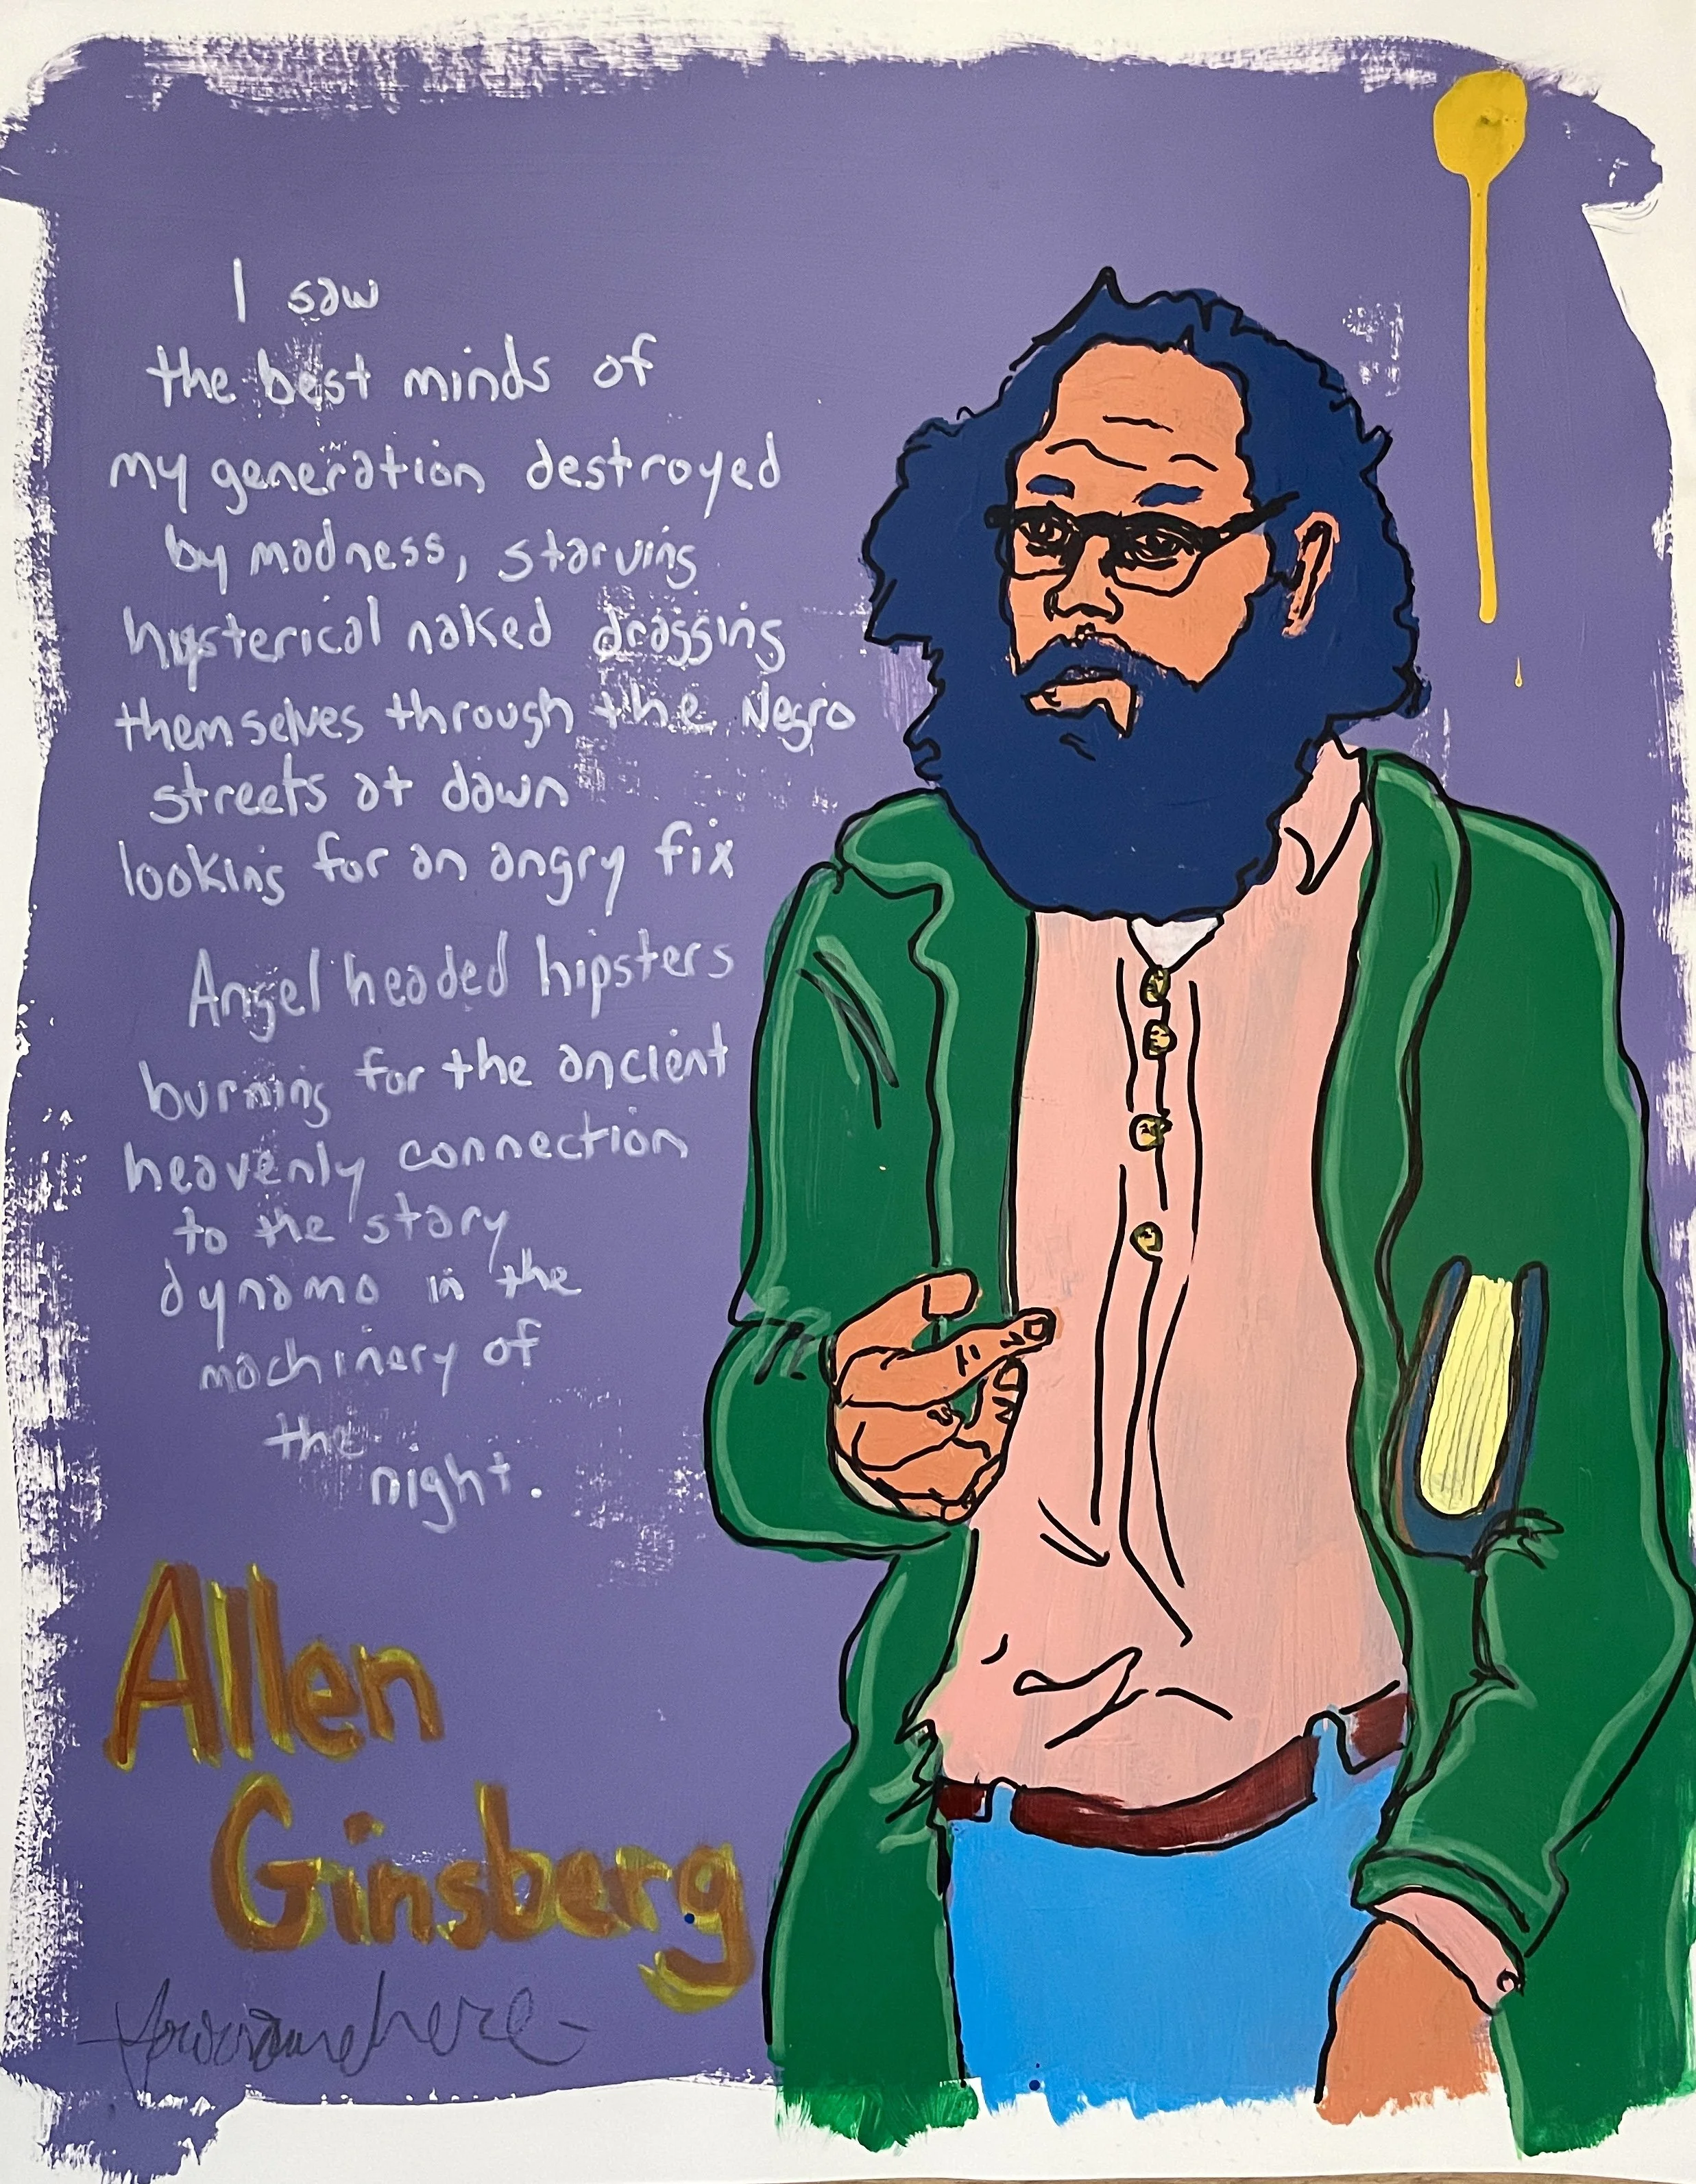 I saw
the best minds of
my generation destroyed
by madness, starving
hysterical naked dragging
themselves through the Negro
streets at dawn
looking for an angry fix
Angel headed hipsters
burning for the ancient
heavenly connection
to the stary
dynamo in the
machinery of
the
night.
Allen
Ginsberg